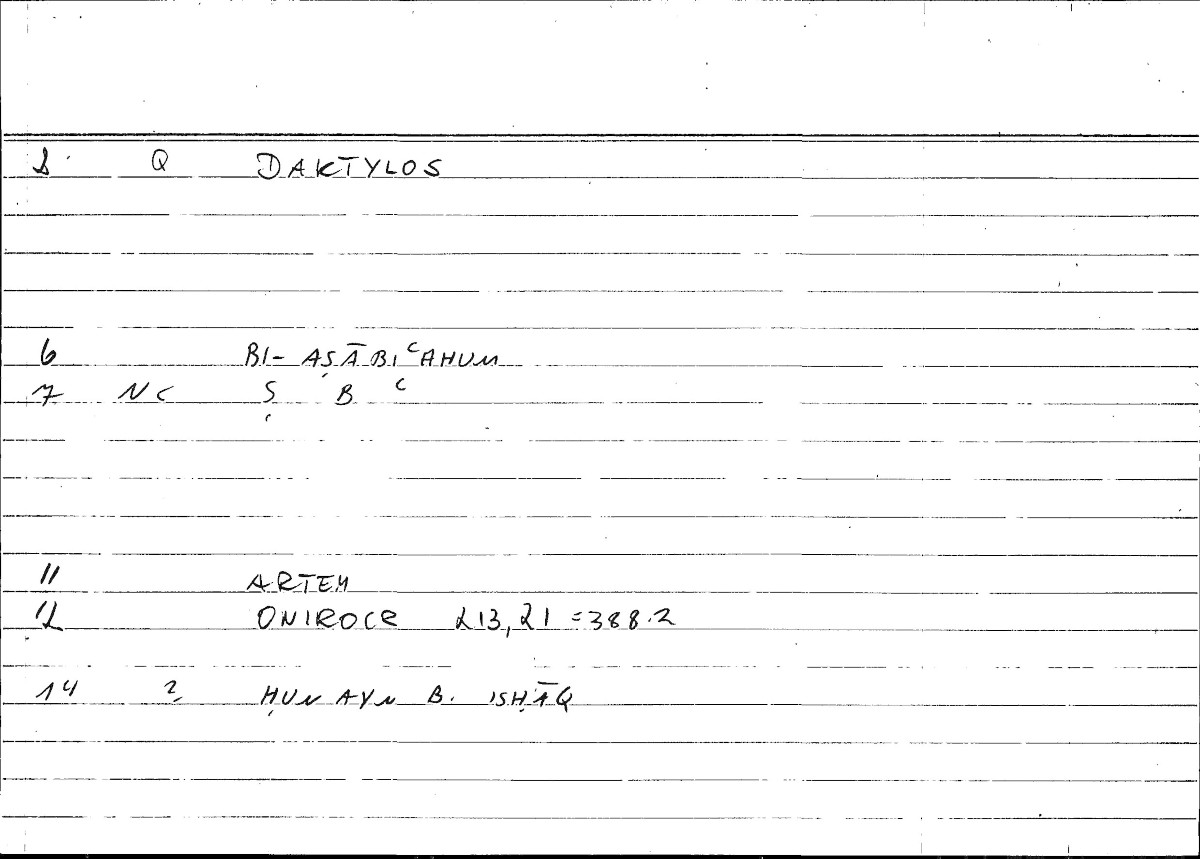 1 Q DAKTYLOS
6 BI- AṢĀBIʿAHUM
7 NC Ṣ B ʿ
11 ARTEM
12 ONIROCR 213,21 = 388.2
14 2 ḤUNAYN B. ISḤĀQ